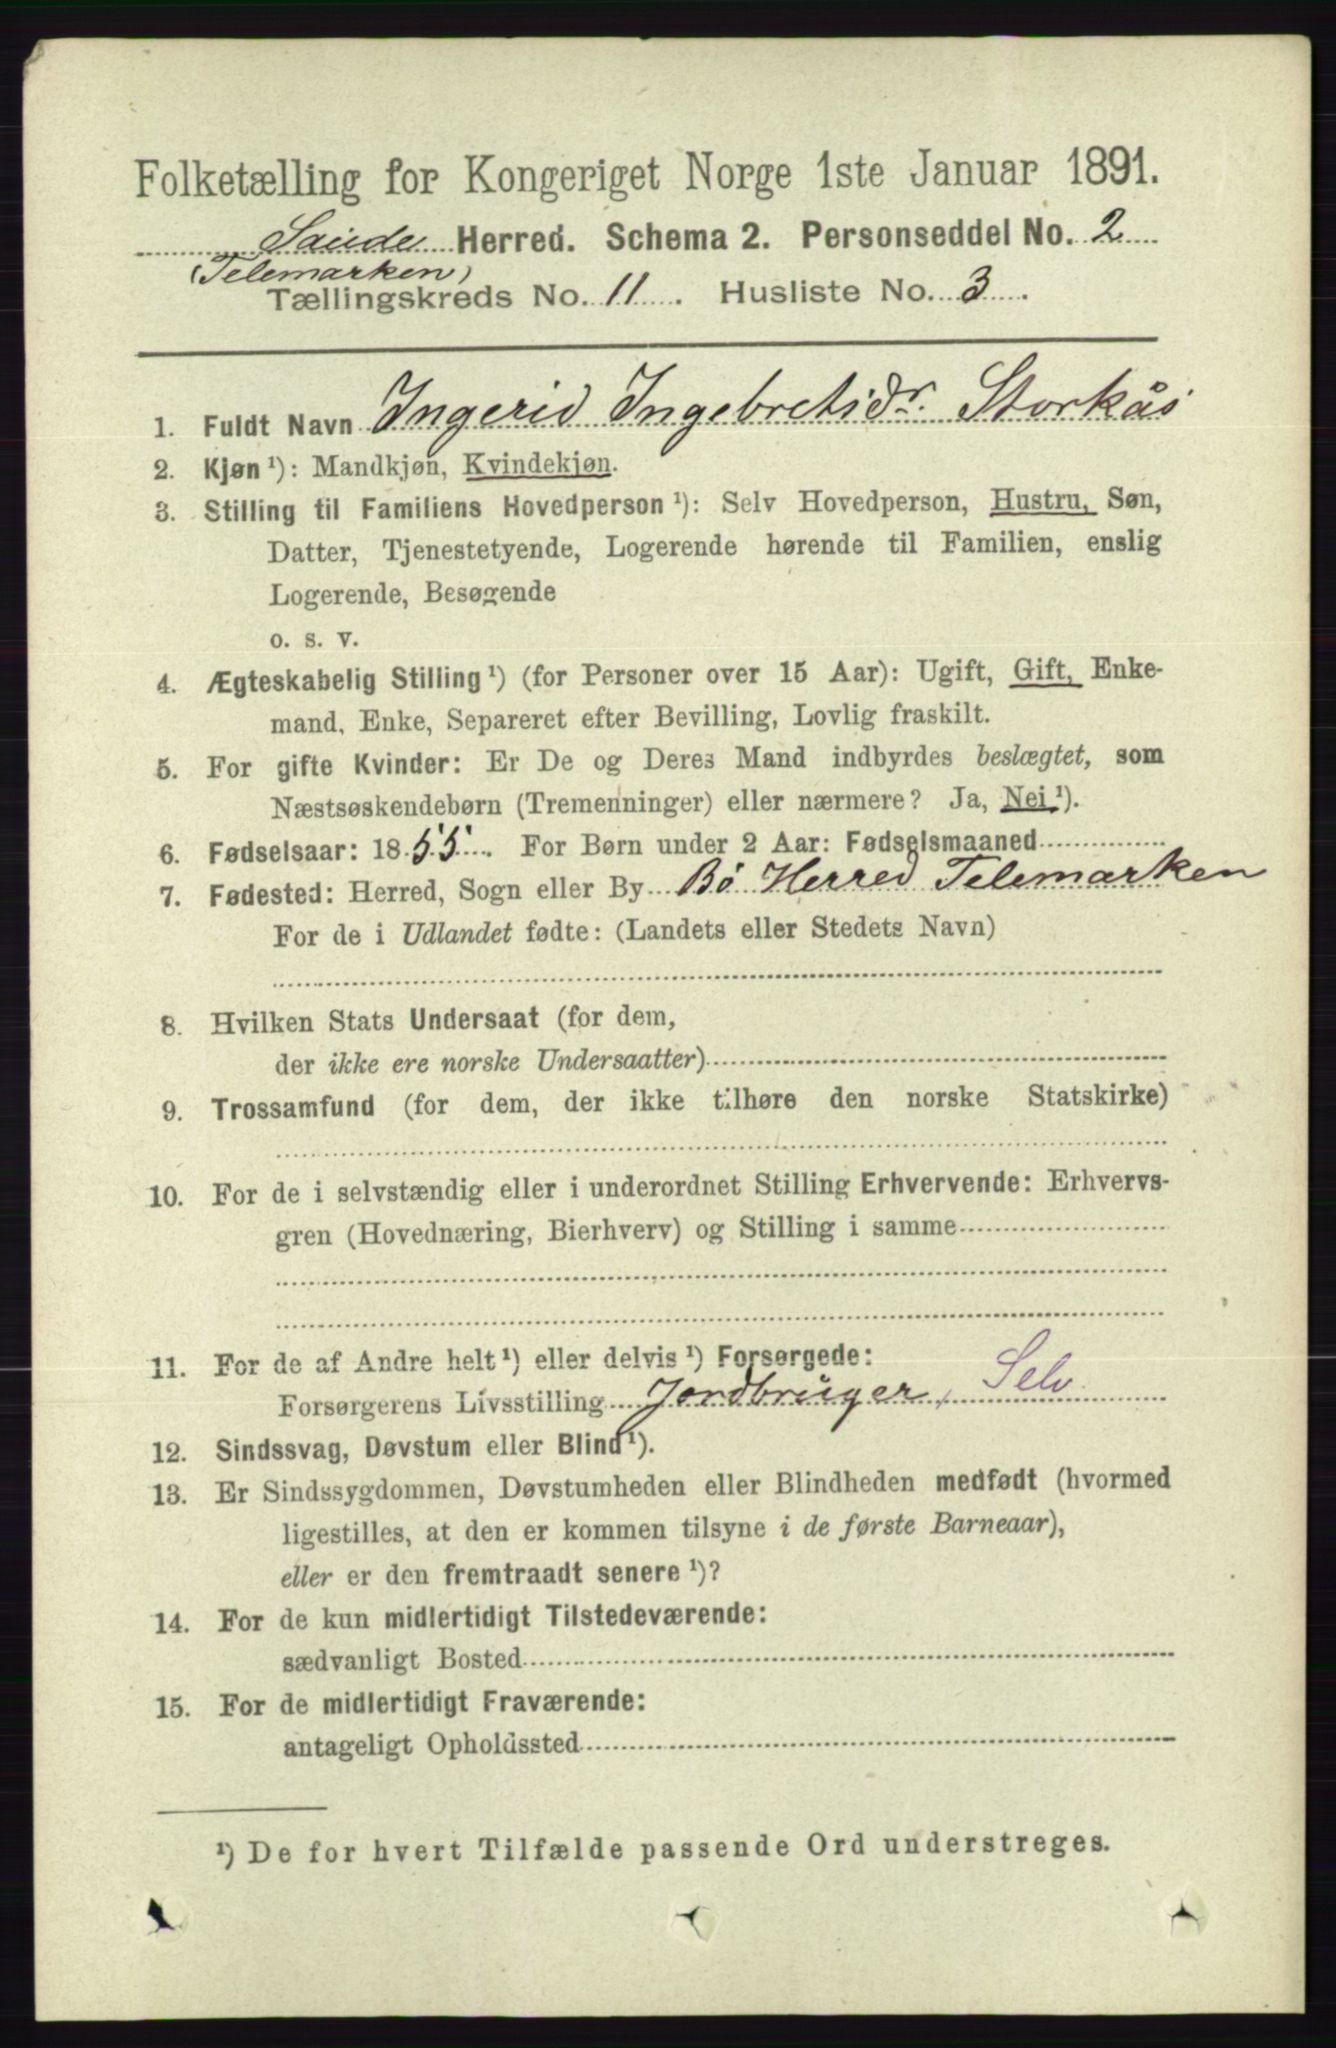 Folketælling for Kongeriget Norge 1ste Januar 1891.
Saude Herred. Schema 2. Personseddel No. 2
(Telemarken)
Tællingskreds No. 11. Husliste No. 3.
1. Fuldt Navn Ingerid Ingebretsdr. Storkås
2. Kjøn ¹): Mandkjøn, Kvindekjøn.
3. Stilling til Familiens Hovedperson ¹): Selv Hovedperson, Hustru, Søn,
Datter, Tjenestetyende, Logerende hørende til Familien, enslig
Logerende, Besøgende
o. s. v.
4. Ægteskabelig Stilling ¹) (for Personer over 15 Aar): Ugift, Gift, Enke-
mand, Enke, Separeret efter Bevilling, Lovlig fraskilt.
5. For gifte Kvinder: Er De og Deres Mand indbyrdes beslægtet, som
Næstsøskendebørn (Tremenninger) eller nærmere? Ja, Nei ¹).
6. Fødselsaar: 1855. For Børn under 2 Aar: Fødselsmaaned
7. Fødested: Herred, Sogn eller By Bø Herred Telemarken
For de i Udlandet fødte: (Landets eller Stedets Navn)
8. Hvilken Stats Undersaat (for dem,
der ikke ere norske Undersaatter)
9. Trossamfund (for dem, der ikke tilhøre den norske Statskirke)
10. For de i selvstændig eller i underordnet Stilling Erhvervende: Erhvervs-
gren (Hovednæring, Bierhverv) og Stilling i samme
11. For de af Andre helt ¹) eller delvis ¹) Forsørgede:
Forsørgerens Livsstilling Jordbruger, Selv
12. Sindssvag, Døvstum eller Blind ¹).
13. Er Sindssygdommen, Døvstumheden eller Blindheden medfødt (hvormed
ligestilles, at den er kommen tilsyne i de første Barneaar),
eller er den fremtraadt senere ¹)?
14. For de kun midlertidigt Tilstedeværende:
sædvanligt Bosted
15. For de midlertidigt Fraværende:
antageligt Opholdssted
¹) De for hvert Tilfælde passende Ord understreges.